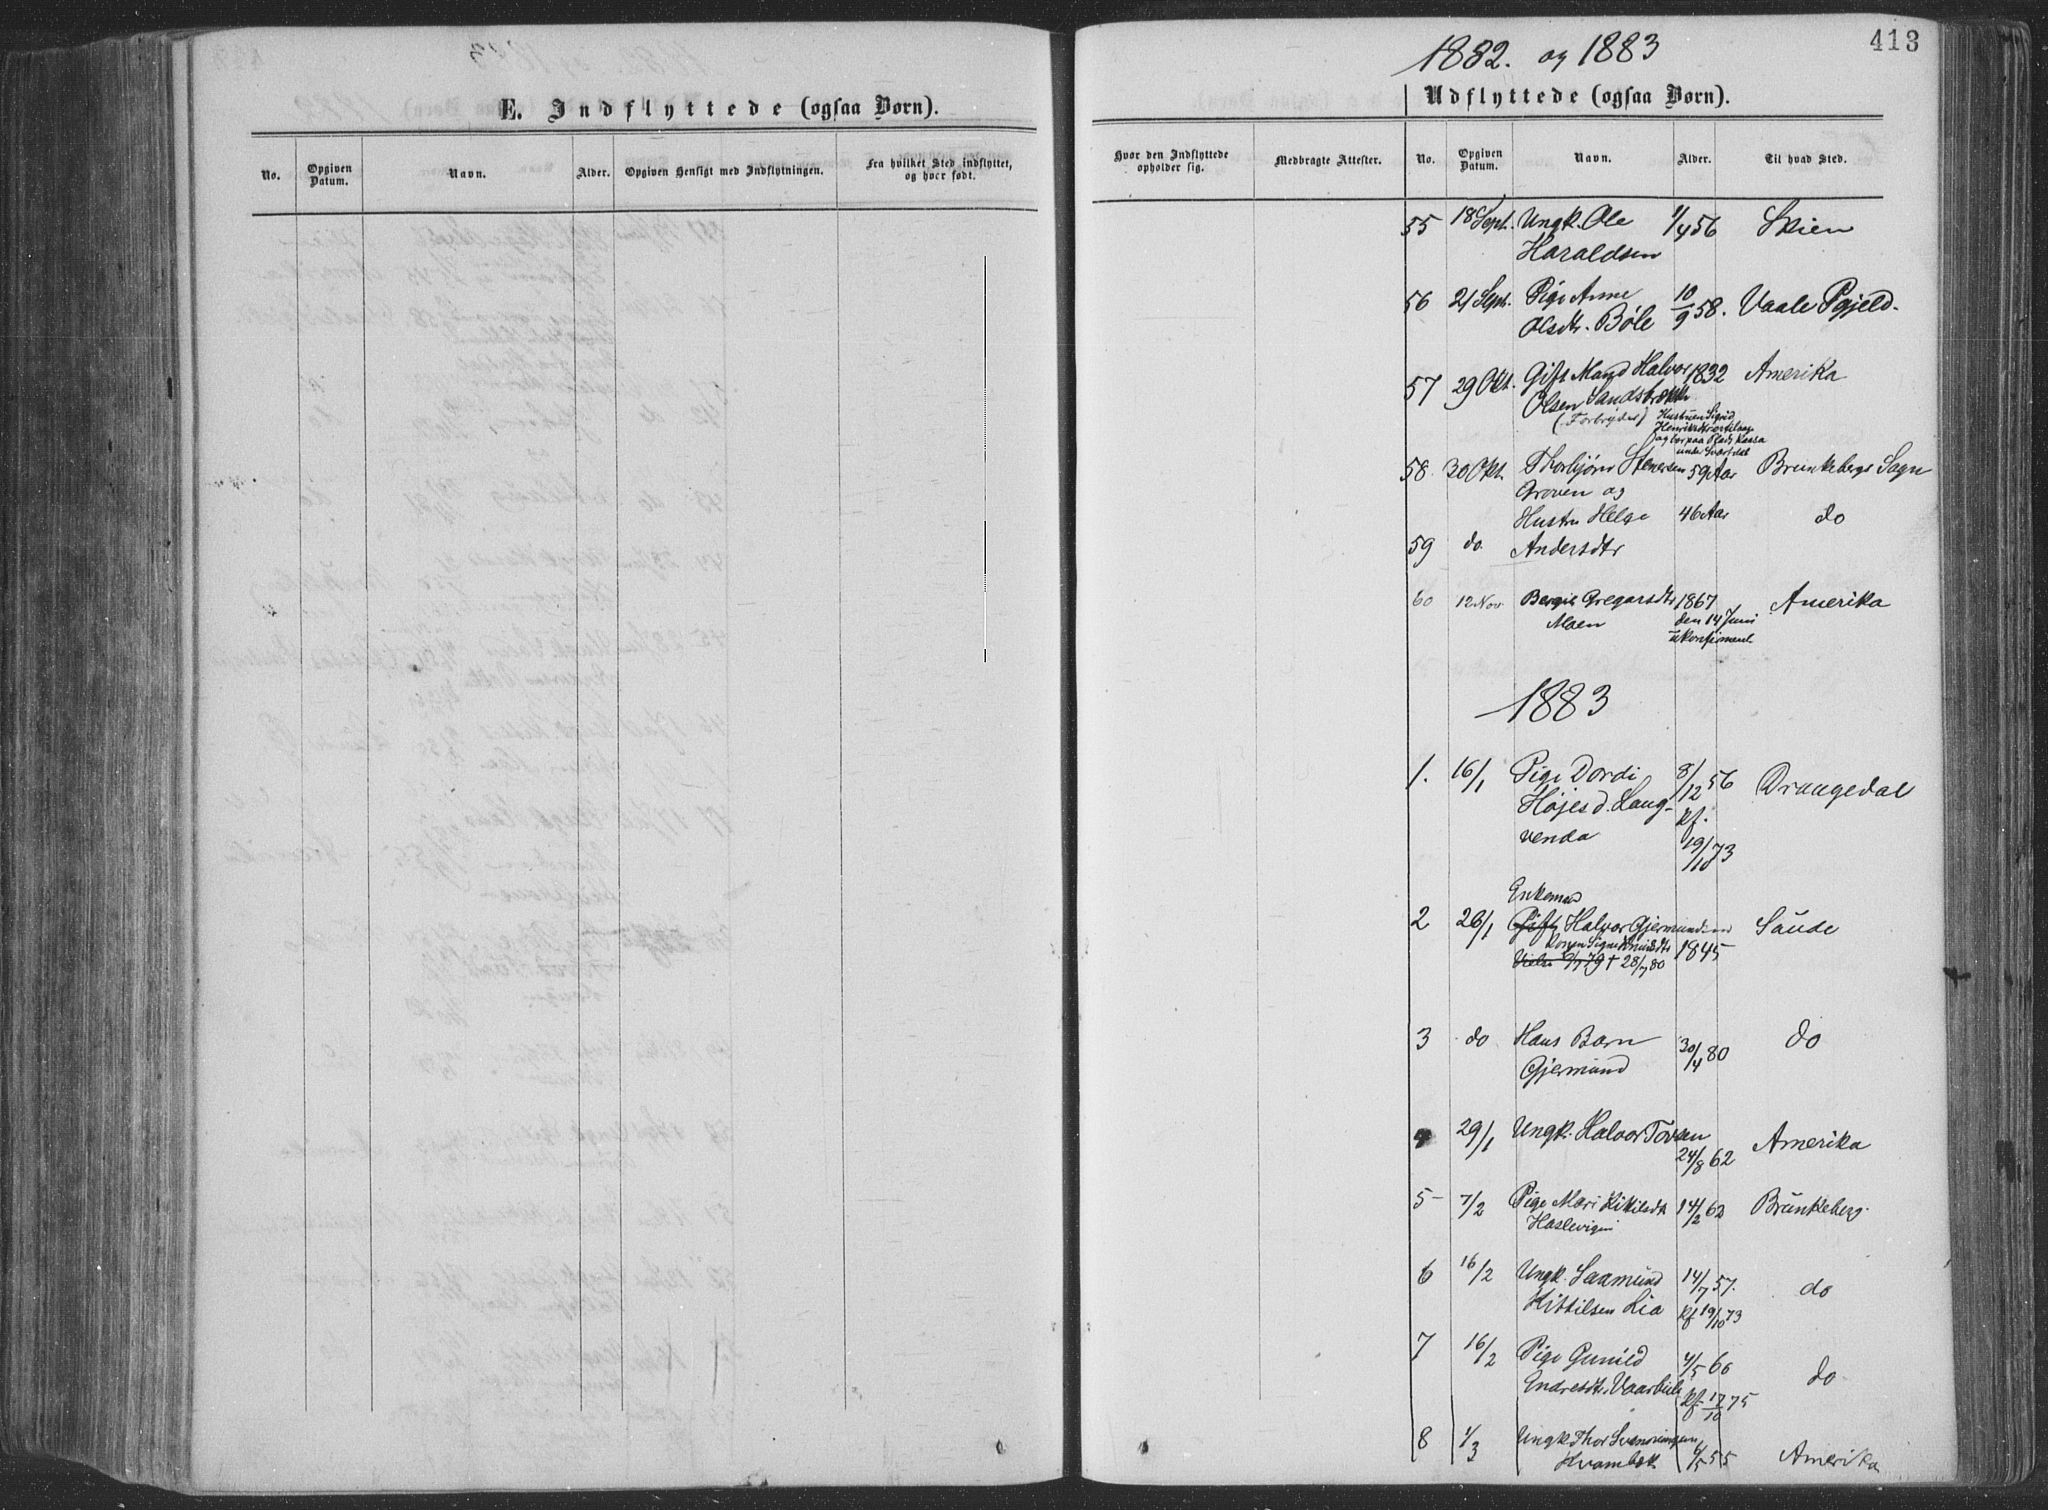 413
1882. og 1883
E. Indflyttede (ogsaa Børn).
Udflyttede (ogsaa Børn).
No. Opgiven Datum. Navn. Alder. Opgiven Hensigt med Indflytningen. Fra hvilket Sted indflyttet, og hvor født.
Hvor den Indflyttede opholder sig. Medbragte Attester. No. Opgiven Datum. Navn. Alder. Til hvad Sted.
55 18 Sept. Ungk. Ole 1/4 56 Skien
Haraldsen
56 21 Sept. Pige Anne 10/9 58. Vaale Pgjeld.
Olsdtr. Bøle
57 29 Okt. Gift Mand Halvor 1832 Amerika
Olsen Sandstrækk
(Forbryder) Hustruen Sigrid
Henriksdtr
og bor paa Plads Kaasa
under Svartdal
58. 30 Okt. Thorbjørn Stenersen 59 Aar Brunkebergs Sogn
Groven og
Hustru Helge 46 Aar do
59 do. Andersdtr
60 12 Nov. Bergit Gregarsdtr 1867 Amerika
Moen den 14 Juni
ukonfirmeret
1883
1. 16/1 Pige Dordi 8/12 56 Drangedal
Højesd. Lang- kf.
venda 19/10 73
Enkemand
2 26/1 Gift Halvor Gjermundsen Saude
1845
9/7 79 † 28/7 80
3 do Hans Barn 30/4 80 do
Gjermund
4 29/1 Ungk. Halvor Tovsen Amerika
24/8 62
5 7/2 Pige Mari Kittilsdtr 14/2 62 Brunkeberg.
Haslevigen
6 16/2 Ungk. Saamund 14/7 57. do
Kittilsen Lia kf 19/10 73
7 16/2 Pige Gunild 4/5 60 do
Endresdtr. Vaarbue kf 17/10 75
8 1/3 Ungk Thor Svennungsen
Kvambæk 6/5 55 Amerika